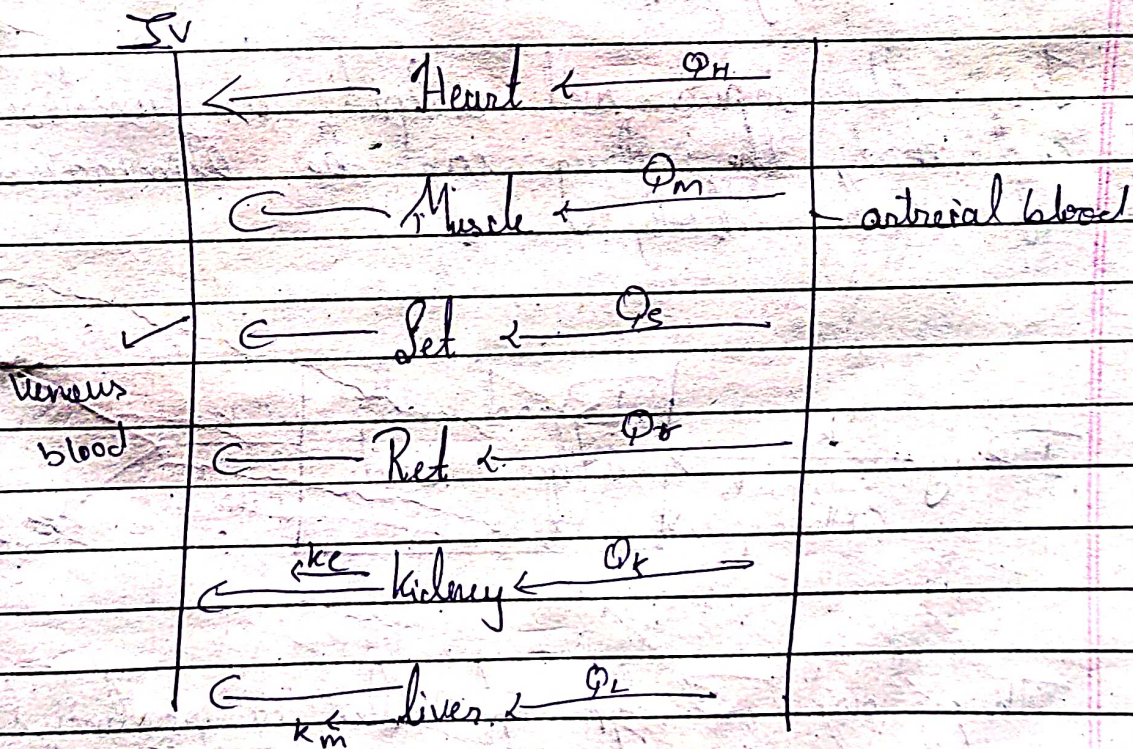 IV
Heart QH
Muscle Qm
artreial blood
Set Qs
Venous
blood
Ret Qr
ke kidney QK
liver QL
km